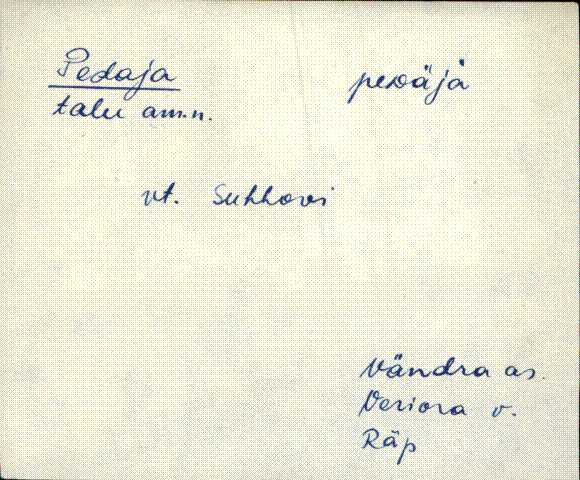 Pedaja peᴅäjä
talu am.n.
vt. Suhhovi
Vändra as.
Veriora v.
Räp